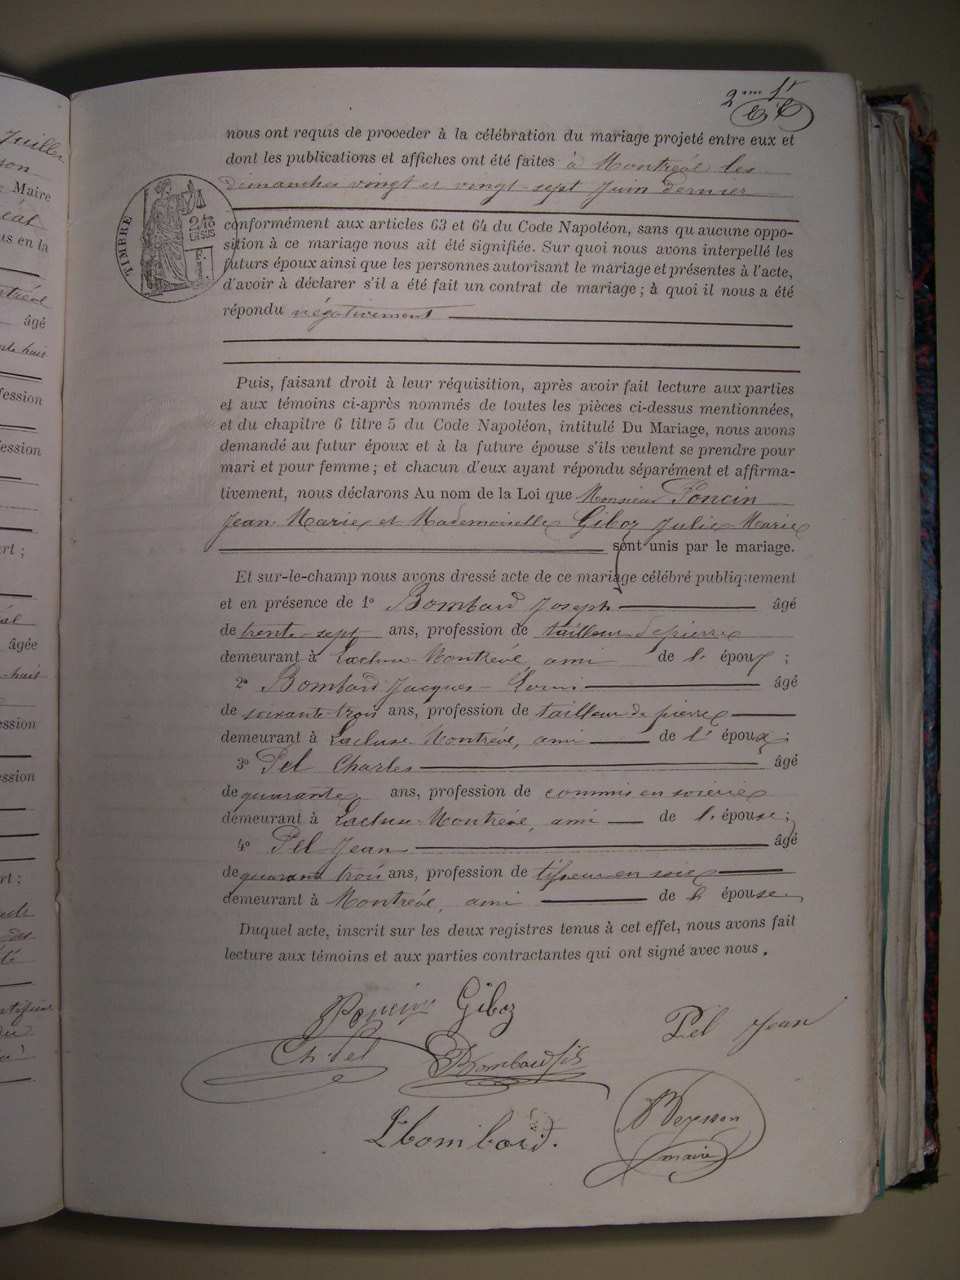 2me ft
nous ont requis de proceder à la célébration du mariage projeté entre eux et
dont les publications et affiches ont été faites à Montréal les
dimanches vingt et vingt-sept Juin dernier
TIMBRE
conformément aux articles 63 et 64 du Code Napoléon, sans qu'aucune oppo-
sition à ce mariage nous ait été signifiée. Sur quoi nous avons interpellé les
futurs époux ainsi que les personnes autorisant le mariage et présentes à l'acte,
d'avoir à déclarer s'il a été fait un contrat de mariage ; à quoi il nous a été
répondu négativement
Puis, faisant droit à leur réquisition, après avoir fait lecture aux parties
et aux témoins ci-après nommés de toutes les pièces ci-dessus mentionnées,
et du chapitre 6 titre 5 du Code Napoléon, intitulé Du Mariage, nous avons
demandé au futur époux et à la future épouse s'ils veulent se prendre pour
mari et pour femme ; et chacun d'eux ayant répondu séparément et affirma-
tivement, nous déclarons Au nom de la Loi que Monsieur Poncin
Jean Marie et Mademoiselle Giboz Julie Marie
sont unis par le mariage.
Et sur-le-champ nous avons dressé acte de ce mariage célébré publiquement
et en présence de 1º Bombard Joseph âgé
de trente-sept ans, profession de tailleur de pierre
demeurant à Lacluse-Montréal, ami de l' époux ;
2º Bombard Jacques-Louis âgé
de soixante-trois ans, profession de tailleur de pierre
demeurant à Lacluse-Montréal, ami de l' époux ;
3º Pel Charles âgé
de quarante ans, profession de commis en soierie
demeurant à Lacluse-Montréal, ami de l' épouse ;
4º Pel Jean âgé
de quarante trois ans, profession de tisseur en soie
demeurant à Montréal, ami de l' épouse
Duquel acte, inscrit sur les deux registres tenus à cet effet, nous avons fait
lecture aux témoins et aux parties contractantes qui ont signé avec nous.
Poncin Giboz
Pel Jean
Ch Pel Bombard fils
L bombard.
maire